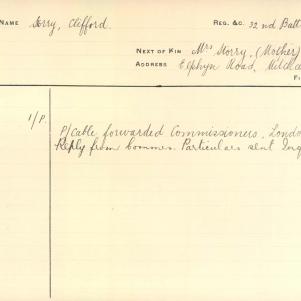 NAME Storry, Clifford. REG. &C. 32nd Batt
NEXT OF KIN Mrs Storry, (Mother)
ADDRESS Elphyn Road, Mild
1/P. P/Cable forwarded Commissioners, Londo
Reply from Commrs. Particulars sent Inq